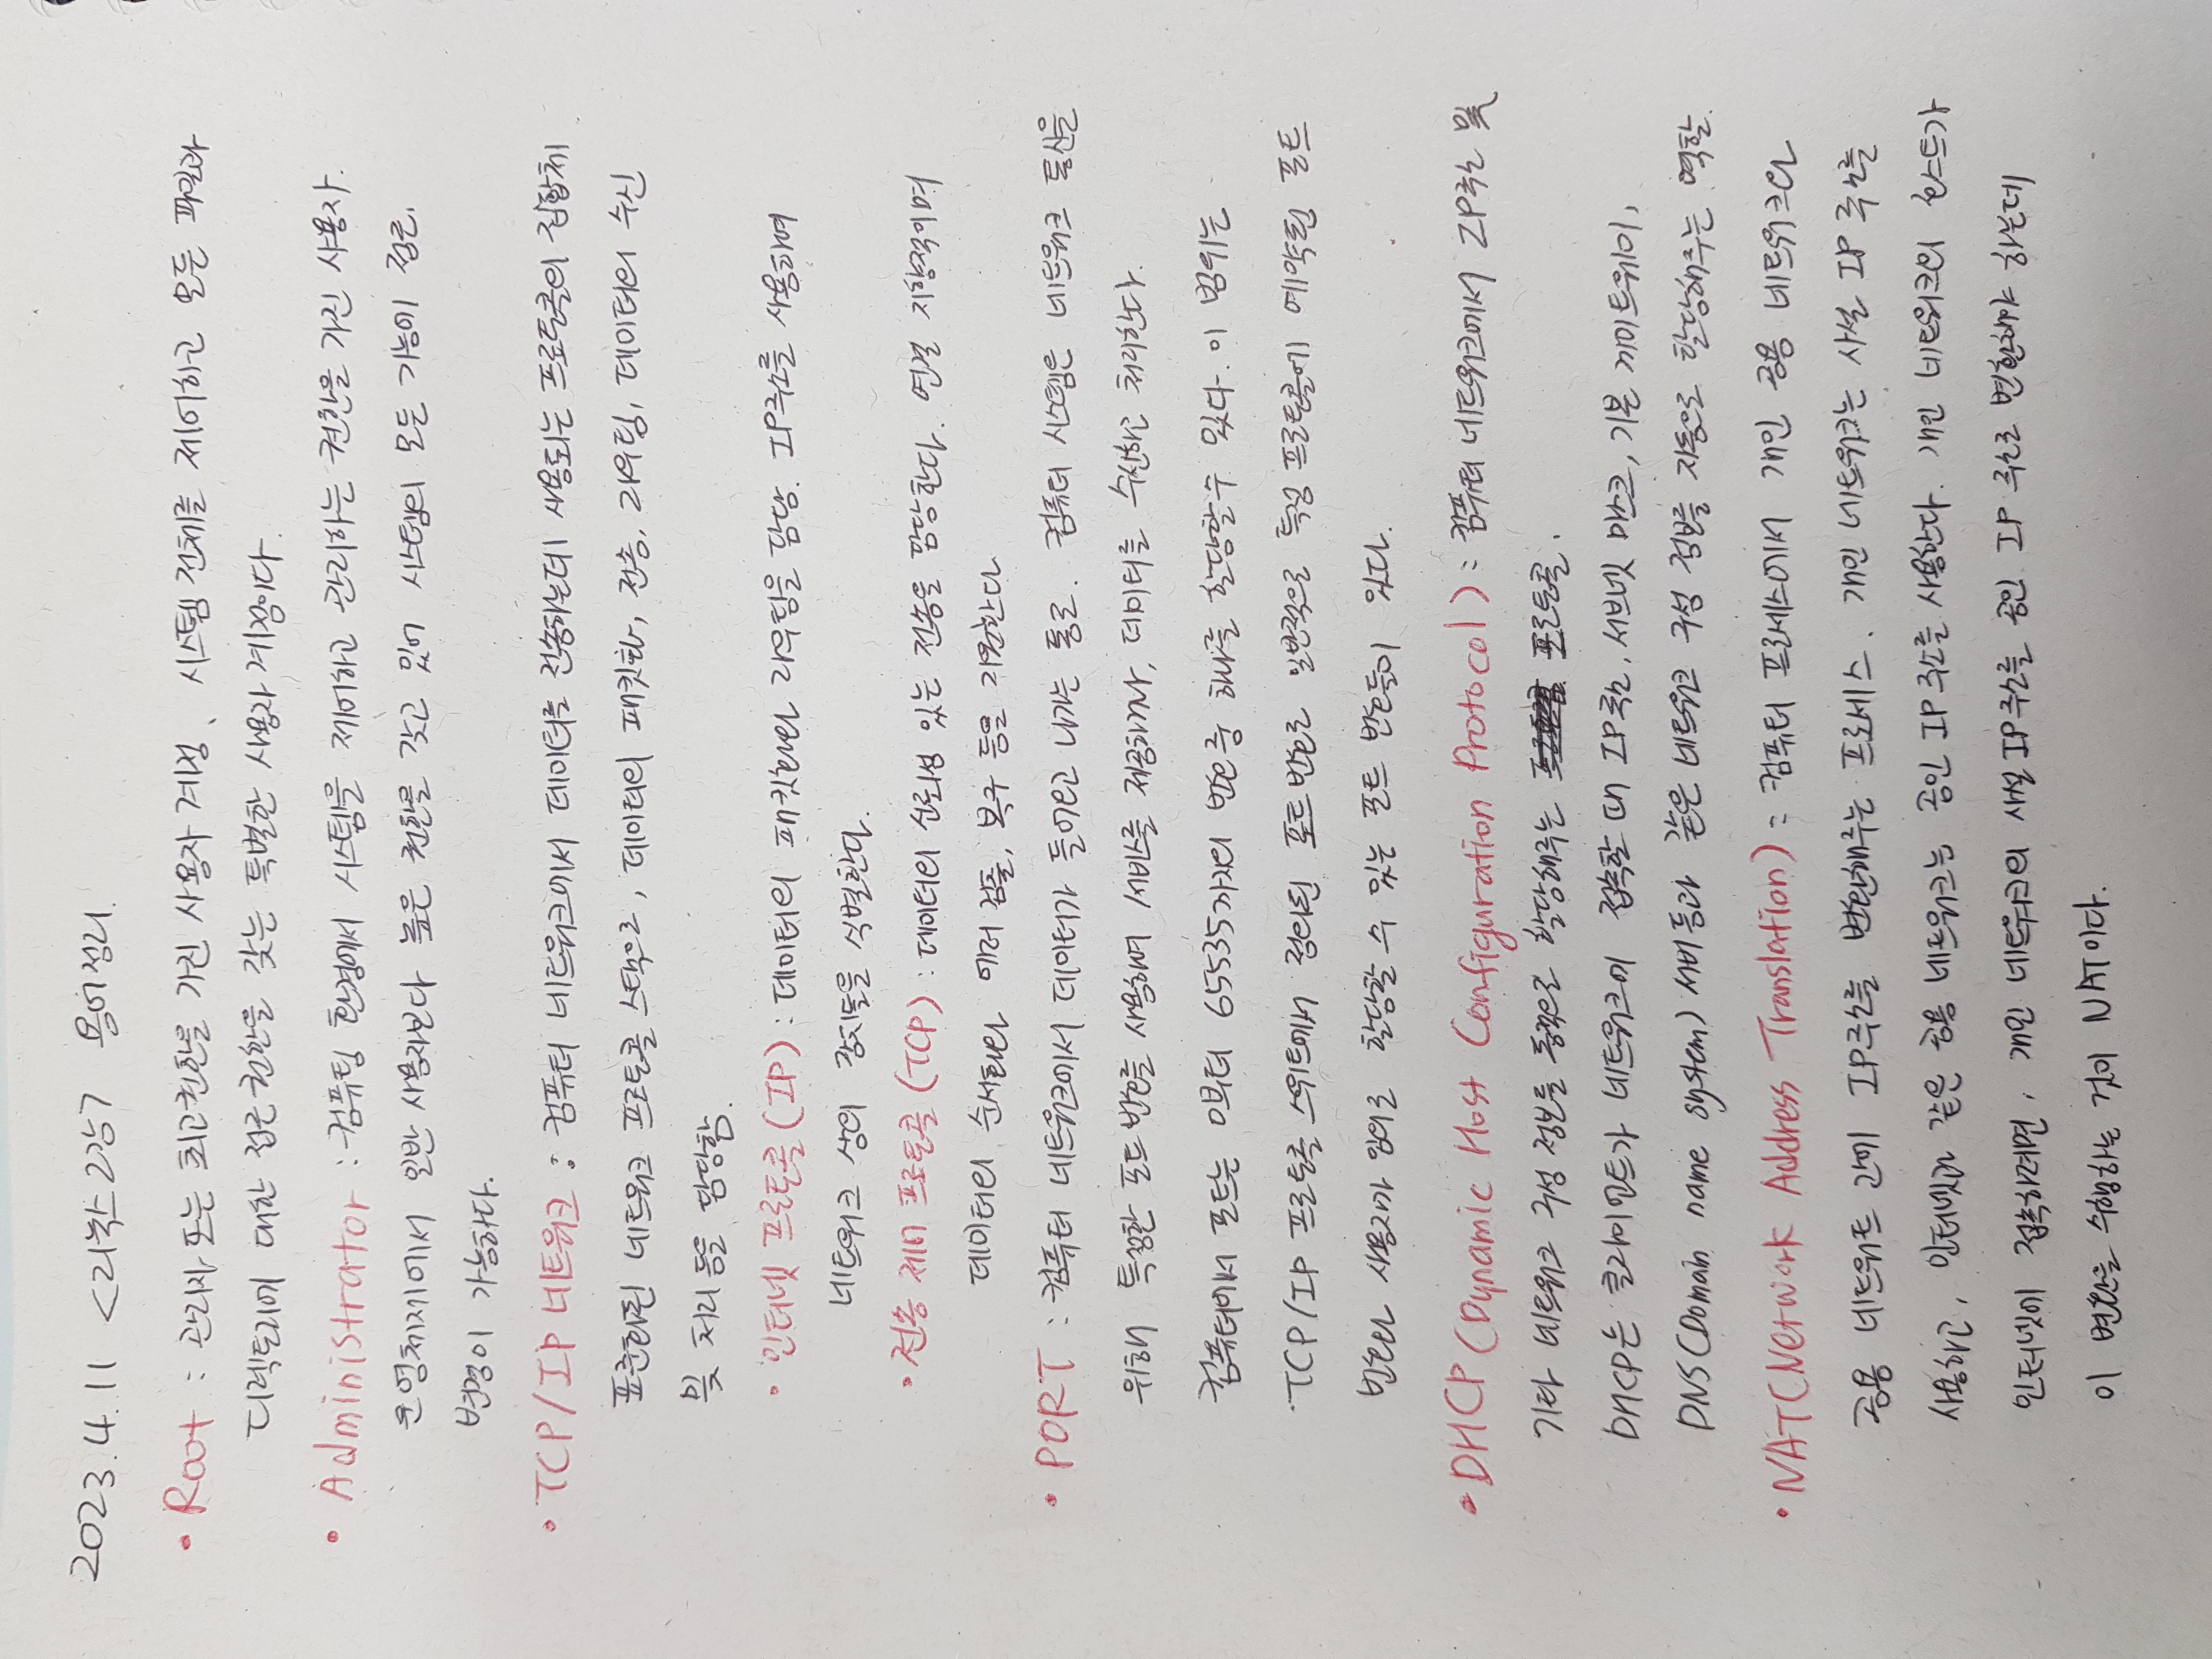 2023.4.11 <리눅스 2강> 용어정리.
• Root : 관리자 또는 최고권한을 가진 사용자 계정、시스템 전체를 제어하고 모든 파일과
디렉토리에 대한 접근권한을 갖는 특별한 사용자 계정이다.
• Administrator : 컴퓨팅 환경에서 시스템을 제어하고 관리하는 권한을 가진 사용자.
운영체제에서 일반 사용자보다 높은 권한을 갖고 있어 시스템의 모든 기능이 접근.
변경이 가능하다.
• TCP/IP 네트워크 : 컴퓨터 네트워크에서 데이터를 전송하는데 사용되는 프로토콜의 집합체
표준화된 네트워크 프로토콜 스택으로, 데이터의 패킷화, 전송, 라우팅, 데이터의 수신
및 처리 등을 담당함.
• 인터넷 프로토콜(IP) : 데이터의 패킷화와 라우팅을 담당. IP주소를 사용하여
네트워크 상의 장치들을 식별한다.
• 전송 제어 프로토콜(TCP) : 데이터의 신뢰성 있는 전송을 담당한다. 연결 지향적이며
데이터의 순서화와 에러 검출, 복구 등을 지원한다
• PORT : 컴퓨터 네트워크에서 데이터가 들어오고 나가는 통로. 컴퓨터 시스템은 네트워크 통신을
위해 특정한 포트번호를 사용하여 서비스를 제공하거나, 데이터를 수신하고 처리한다.
컴퓨터에서 포트는 0부터 65535까지의 번호 중 하나를 할당할 수 있다. 이 범위는
TCP/IP 프로토콜 스위트에서 정의된 포트번호로 일반적으로 특정 프로토콜에 예약된 포트
번호와 사용자가 임의로 할당할 수 있는 포트 번호들이 있다.
• DHCP (Dynamic Host Configuration Protocol) : 컴퓨터 네트워크에서 IP주소 및
기타 네트워크 구성 정보를 동적으로 할당해주는 프로토콜.
DHCP는 클라이언트가 네트워크에 접속할 때 IP주소, 서브넷 마스크, 기본 게이트웨이,
DNS(Domain name system) 서버 등과 같은 네트워크 구성 정보를 자동으로 할당해주는 역할.
• NAT(Network Address Translation) : 컴퓨터 프로세스에서 개인 공용 네트워크와
공용 네트워트 간에 IP주소를 변환해주는 프로세스. 개인 네트워크는 사설 IP 주소를
사용하고, 인터넷과 같은 공용 네트워크는 공인 IP 주소를 사용한다. 개인 네트워크의 호스트가
인터넷에 접속하려면, 개인 네트워크의 사설 IP주소를 공인 IP 주소로 변환해야 하는데
이 변환을 수행하는 것이 NAT이다.